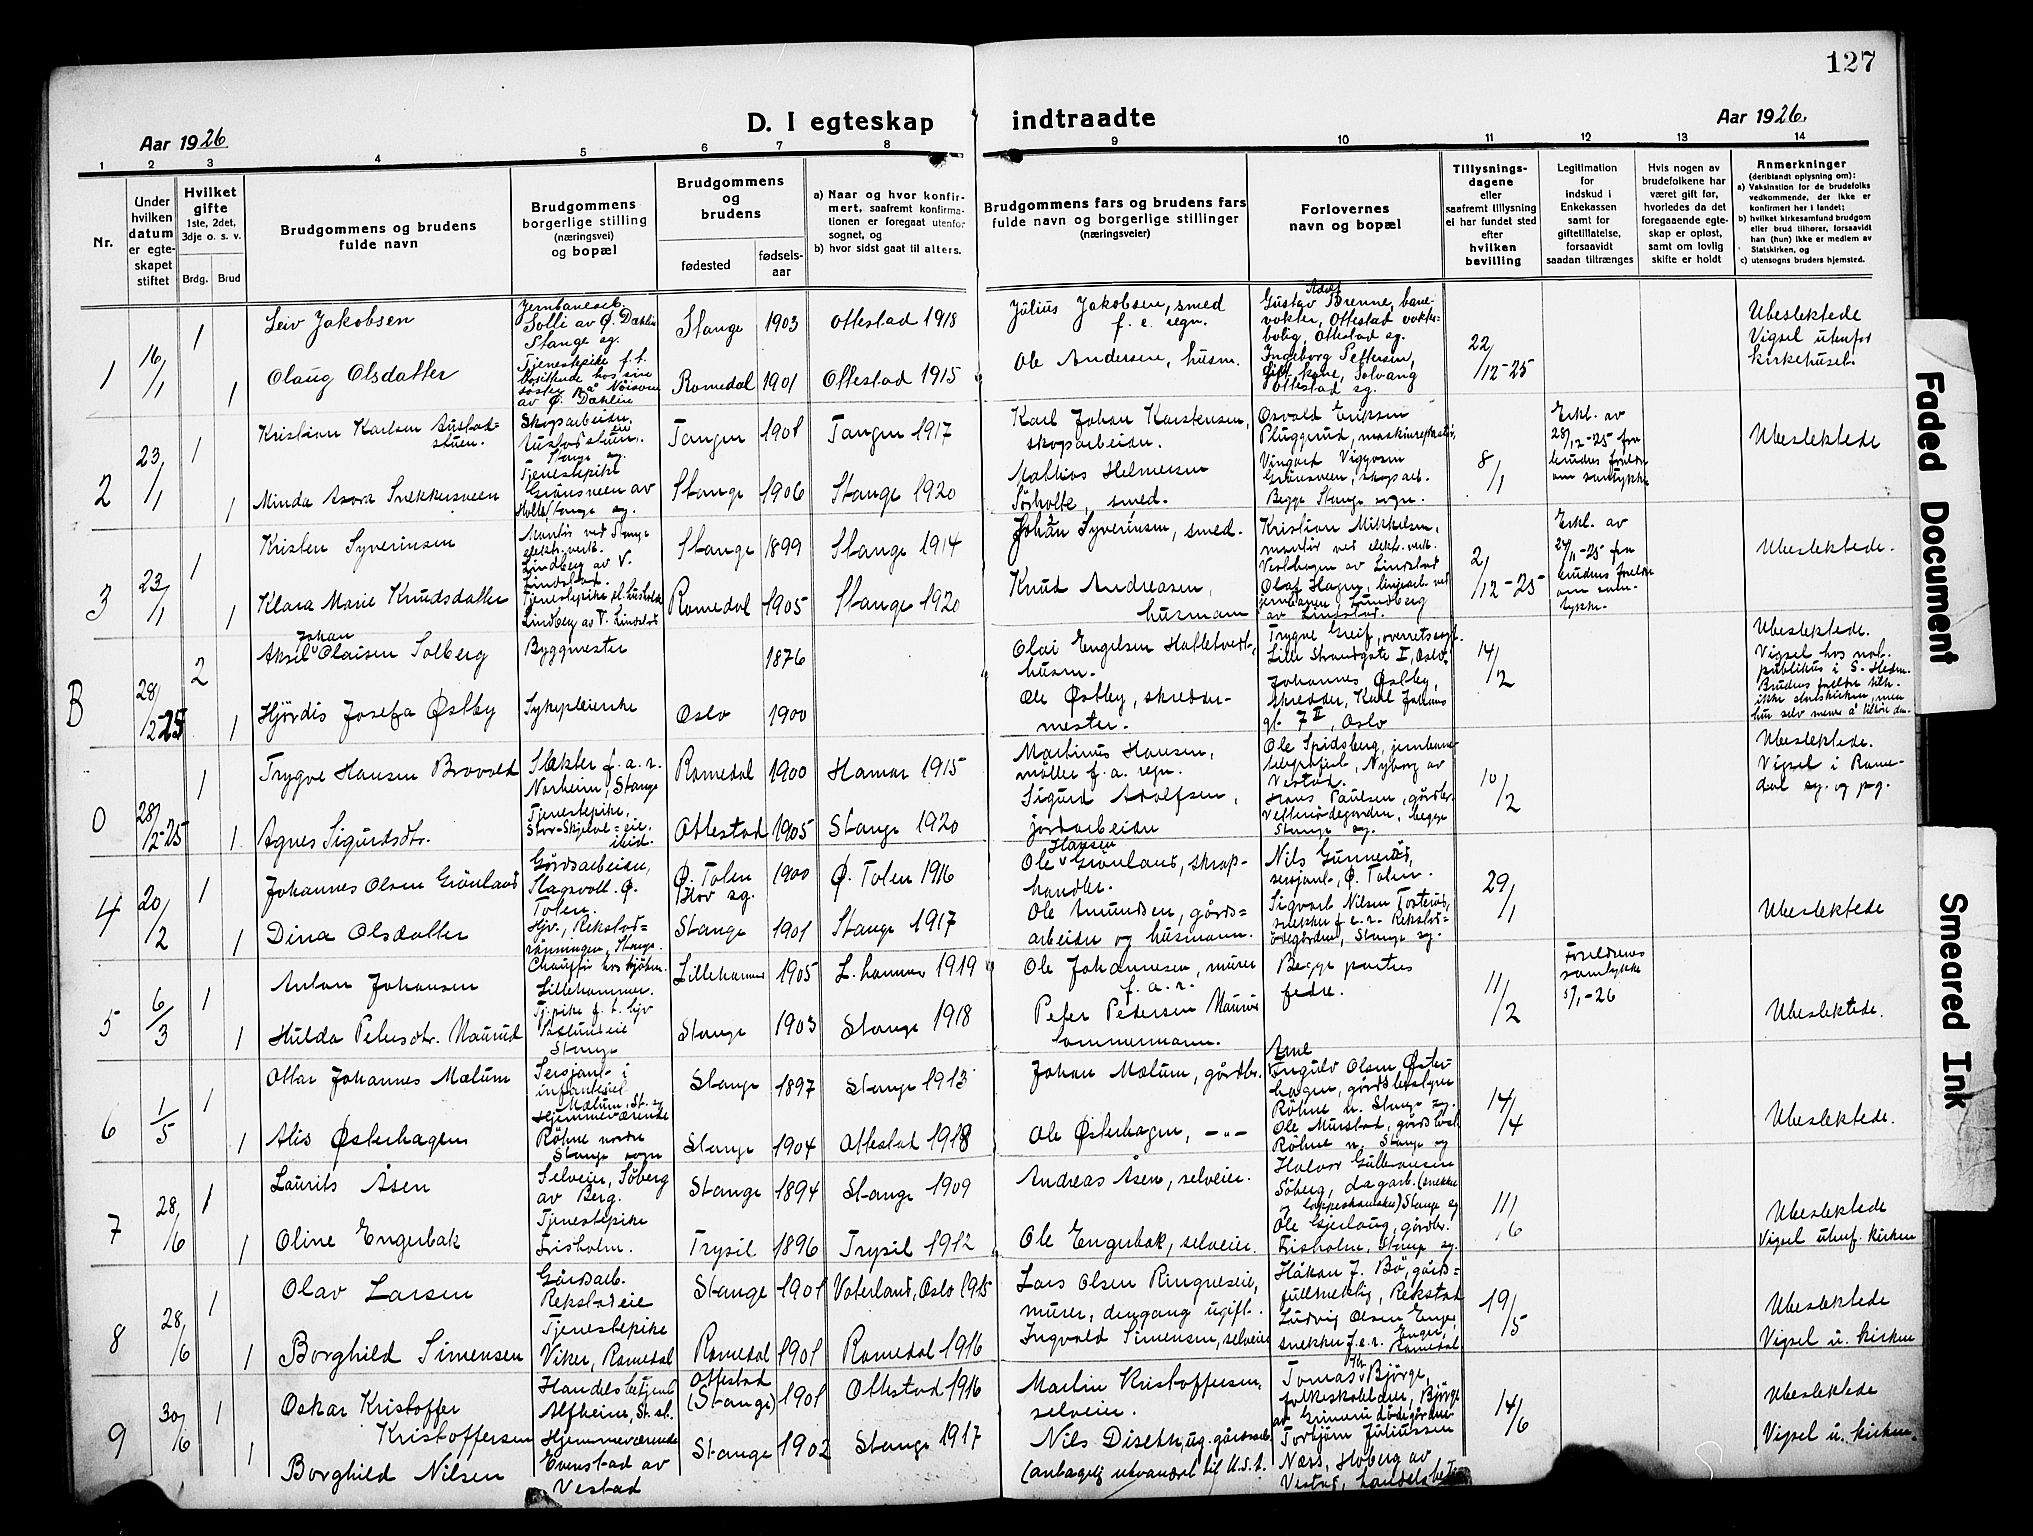 127
D. I egteskap indtraadte
Aar 1926
Aar 1926.
1 2 3 4 5 6 7 8 9 10 11 12 13 14
Nr.
Under hvilken datum er egteskapet stiftet
Hvilket gifte
1ste, 2det, 3dje o. s. v.
Brdg. Brud
Brudgommens og brudens fulde navn
Brudgommens borgerlige stilling (næringsvei) og bopæl
Brudgommens og brudens
fødested
fødsels-aar
a) Naar og hvor konfirmert, saafremt konfirmationen er foregaat utenfor sognet, og
b) hvor sidst gaat til alters.
Brudgommens fars og brudens fars fulde navn og borgerlige stillinger (næringsveier)
Forlovernes navn og bopæl
Tillysningsdagene eller saafremt tillysning ei har fundet sted efter hvilken bevilling
Legitimation for indskud i Enkekassen samt for giftetillatelse, forsaavidt saadan tiltrænges
Hvis nogen av brudefolkene har været gift før, hvorledes da det foregaaende egteskap er opløst, samt om lovlig skifte er holdt
Anmerkninger
(deriblandt oplysning om):
a) Vaksination for de brudefolks vedkommende, der ikke er konfirmert her i landet;
b) hvilket kirkesamfund brudgom eller brud tilhører, forsaavidt han (hun) ikke er medlem av Statskirken, og
c) utensogns bruders hjemsted.
1
16/1
1
Leiv Jakobsen
Solli av Ø. Dæhlin
Stange sg.
Stange 1903
Ottestad 1918
Julius Jakobsen, smed
f. e. segn.
Gustav Adolf Brenne, banevokter, Ottestad vokterbolig, Ottestad sg.
22/12-25
Ubeslektede
Vigsel utenfor kirkehuset.
1
Olaug Olsdatter
Romedal 1901
Ottestad 1915
Ole Andersen, husm.
Ingeborg Pettersen,
gift kone, Solvang
Ottestad sg.
2
23/1
1
Kristian Karlsen Austadstuen.
Skogsarbeider,
Stange sg.
Tangen 1901
Tangen 1917
Karl Johan Karstensen,
skogsarbeider.
Osvald Eriksen
Pluggerud,
8/1
Erkl. av
28/12-25 fra
brudens foreldre
om samtykke
Ubeslektede
1
Minda Asora Snekkersveen
Tjenestepike
Stange 1906
Stange 1920
Mathias Helmersen
Sørholte, smed.
Begge Stange sogn.
3
23/1
1
Kristen Syverinsen
Montør ved Stange
elektr. verk.
Lindberg av V.
Lindstad.
Stange 1899
Stange 1914
Johan Syverinsen, smed.
Kristian Mikkelsen,
montør ved elektr. verk.
2/12-25
Erkl. av
24/11-25 fra
brudens foreldre
om samtykke.
Ubeslektede.
1
Klara Marie Knudsdatter
Lindberg av V. Lindstad
Romedal 1905
Stange 1920
Knud Andreasen,
husmann
Olaf Hagen, linjearb. ved
jernbanen Lundberg
av Lindstad.
B
28/2 25
2
Aksel Johan Olaisen Solberg
Byggmester
1876
Olai Engelsen Halletvedt,
husm.
Trygve Greif, overretssagf.
Lille Strandgate I, Oslo.
14/2
Ubeslektede.
Vigsel hos not.
publikus i S. Hedm.
1
Hjørdis Josefa Østby
Sykepleierske
Oslo 1900
Ole Østby, skreddermester.
Johannes Østby,
skredder, Karl Johans
gt. 7 II, Oslo
0
28/2-25
1
Trygve Hansen Bravold
Slakter f. a. r.
Norheim, Stange
Romedal 1900
Hamar 1915
Martinus Hansen,
møller f. a. regn.
Ole Spidsberg, jernbanetelegrafist, Nyborg av
Vestad.
10/2
Ubeslektede.
Vigsel i Romedal sg. og pg.
1
Agnes Sigurdsdtr.
Tjenestepike,
Ottestad 1905
Stange 1920
Sigurd Adolfsen,
jordarbeider
Hans Paulsen, gårdbr.
begge
Stange sg.
4
20/2
1
Johannes Olsen Grønland
Gårdsarbeider,
Slagsvoll. Ø.
Toten.
Ø. Toten
Hov sg.
1900
Ø. Toten 1916
Ole Hansen Grønland, skraphandler.
Nils Gunnerød,
sersjant, Ø. Toten.
29/1
Ubeslektede
1
Dina Olsdatter
Stange 1901
Stange 1917
Ole Amundsen, gårdsarbeider og husmann.
Sigvart Nilsen Fosterud,
snekker f. e. r. Rekstadødegården, Stange sg.
5
6/3
1
Anton Johansen
Lillehammer.
Lillehammer 1905
L.hammer 1919
Ole Johannesen, murer
f. a. r.
Begge parters
fedre.
11/2
Foreldrenes
samtykke
5/1-26
Ubeslektede.
1
Hulda Petersdtr. Maurud
Stange
Stange 1903
Stange 1918
Peter Pedersen Maurud
tømmermann.
6
1/5
1
Ottar Johannes Mælum
Sersjant i
infanteriet
Mælum, St. sg
Stange 1897
Stange 1913
Johan Mælum, gårdbr.
Arne Engulv Olsen Østerhagen, gårdsbestyrer
Røhne n. Stange sg.
14/4
Ubeslektede.
1
Alis Østerhagen
Hjemmeværende
Røhne nordre
Stange sogn
Stange 1904
Ottestad 1918
Ole Østerhagen, -"-
Ole Murstad,
Røhne n. Stange sg
7
28/6
1
Laurits Åsen
Selveier, Søberg
av Berg.
Stange 1894
Stange 1909
Andreas Åsen, selveier.
Halvor Gulbransen
Søberg, dagarb.
Stange sg
11/6
Ubeslektede
Vigsel utenf. kirken
1
Oline Engerbak
Tjenestepike
Frisholm.
Trysil 1896
Trysil 1912
Ole Engerbak, selveier.
Ole Gjerlaug, gårdbr.
Frisholm, Stange sg.
8
28/6
1
Olav Larsen
Gårdsarb.
Rekstadeie
Stange 1901
Vaterland, Oslo 1915
Lars Olsen Ringneseie,
murer, dengang ugift.
Håkon J. Bø, gårdsfullmektig, Rekstad
19/5
Ubeslektede
Vigsel u. kirken
1
Borghild Simensen
Tjenestepike
Viker, Romedal
Romedal 1901
Romedal 1916
Ingvald Simensen, selveier
Ludvig Olsen Enger,
snekker f.e.r. Enger,
Romedal
9
30/6
1
Oskar Kristoffer Kristoffersen
Handelsbetjent
Alfheim, St. st.
Ottestad
(Stange) 1901
Ottestad 1916
Martin Kristoffersen,
selveier.
Tomas Bjørge,
folkeskolelærer, Bjørge
14/6
Ubeslektede
Vigsel u. kirken.
1
Borghild Nilsen
Hjemmeværende
Evenstad av
Vestad
Stange 1902
Stange 1917
Nils Diseth, ug. gårdsarb.
(antagelig utvandret til U.S.A.
Torbjørn Juliussen
Næss, Hoberg av
Vestad,
Faded Document
Smeared Ink